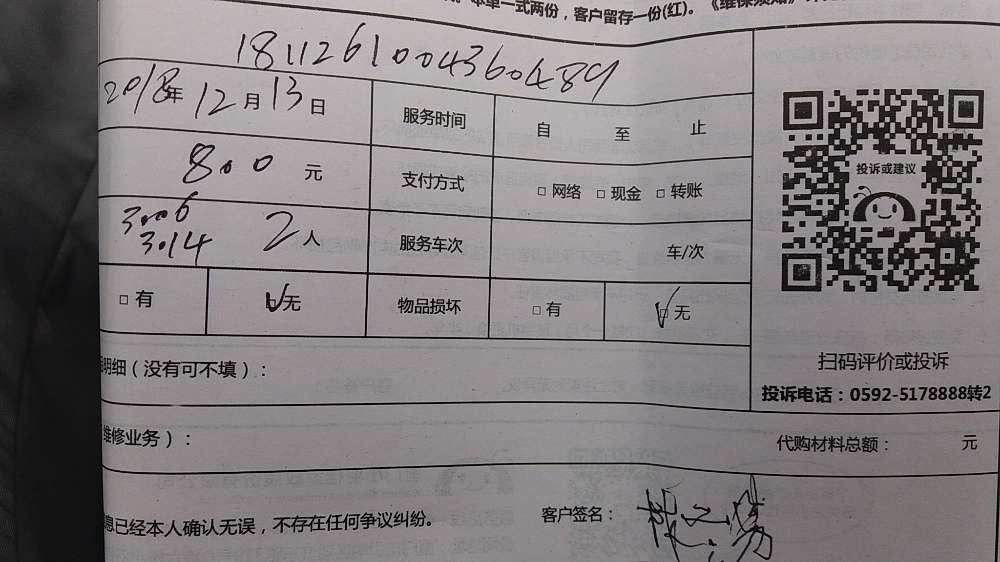 本单一式两份，客户留存一份(红)。《维保须知》
1811261004360489
2018年 12月 13日 服务时间 自 至 止
800 元 支付方式 □ 网络 □ 现金 □ 转账
投诉或建议
3006
3014 2人 服务车次 车/次
□ 有 □ 无 物品损坏 □ 有 □ 无
扫码评价或投诉
明细（没有可不填）：
投诉电话：0592-5178888转2
维修业务）： 代购材料总额： 元
息已经本人确认无误，不存在任何争议纠纷。 客户签名：